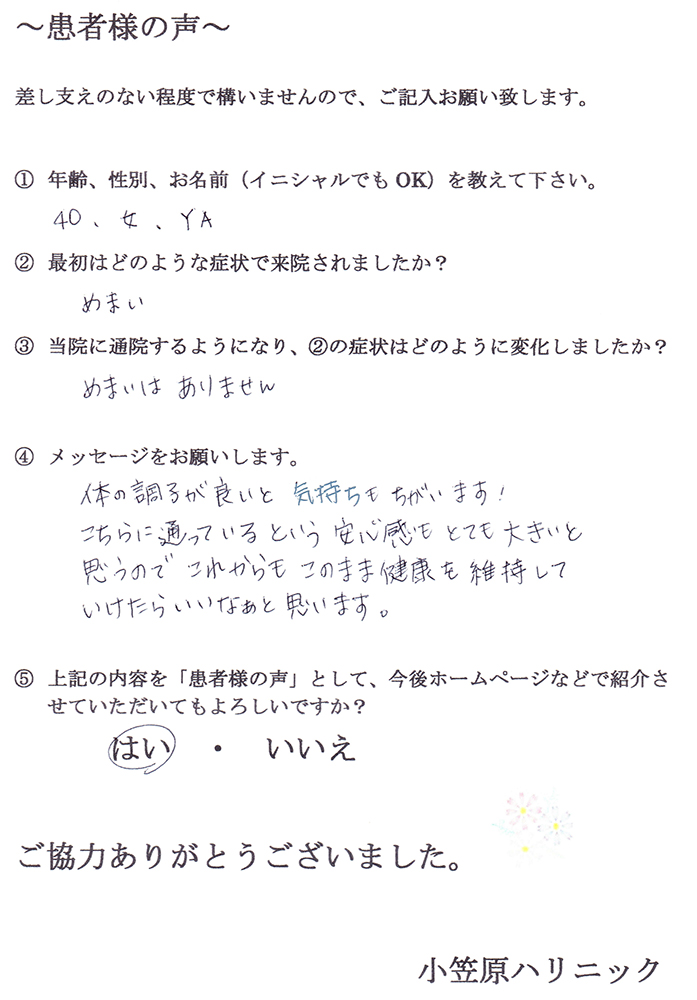 ～患者様の声～
差し支えのない程度で構いませんので、ご記入お願い致します。
① 年齢、性別、お名前（イニシャルでも OK）を教えて下さい。
40、女、YA
② 最初はどのような症状で来院されましたか？
めまい
③ 当院に通院するようになり、②の症状はどのように変化しましたか？
めまいは ありません
④ メッセージをお願いします。
体の調子が良いと 気持ちも ちがいます!
こちらに通っている という 安心感も とても大きいと
思うので これからも このまま健康を維持して
いけたらいいなぁと思います。
⑤ 上記の内容を「患者様の声」として、今後ホームページなどで紹介さ
せていただいてもよろしいですか？
はい ・ いいえ
ご協力ありがとうございました。
小笠原ハリニック